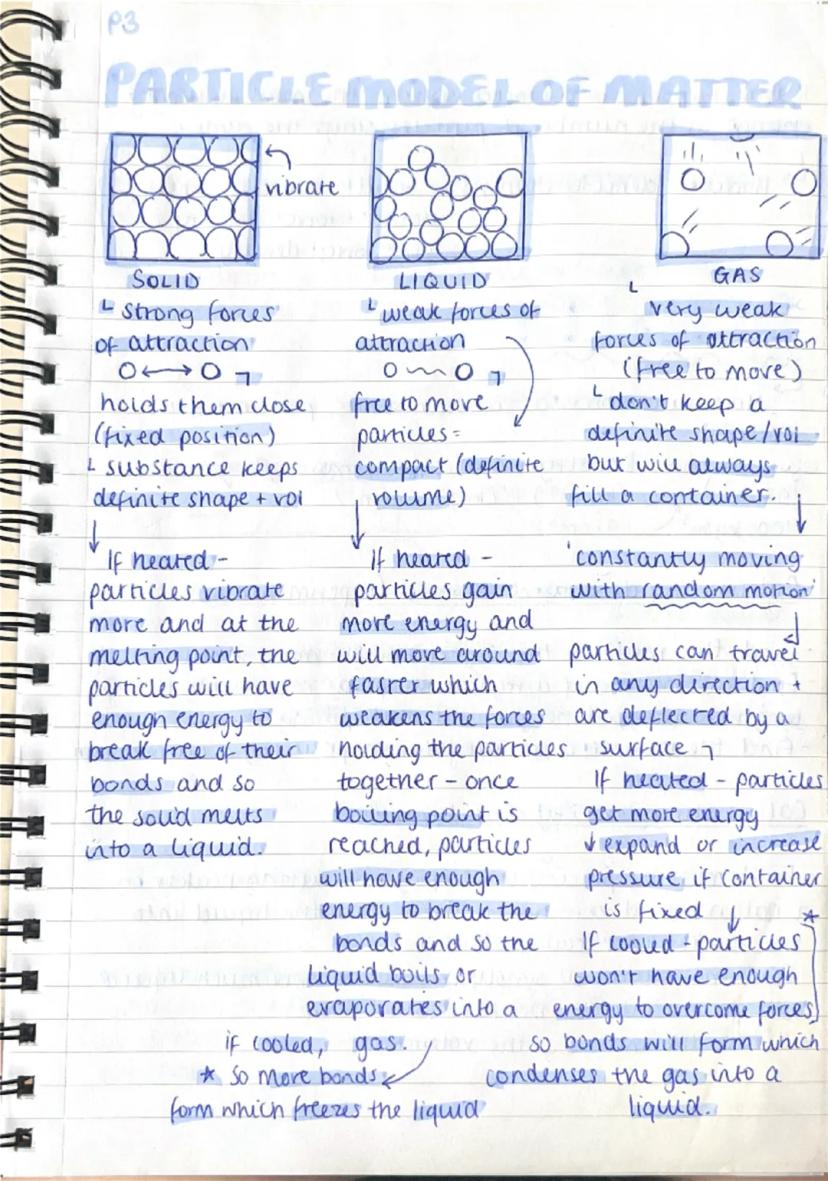 P3
PARTICLE MODEL OF MATTER
vibrate
SOLID
└ strong forces
of attraction
O ↔ O ┐
holds them close
(fixed position)
└ substance keeps
definite shape + vol
↓ If heated -
particles vibrate
more and at the
melting point, the
particles will have
enough energy to
break free of their
bonds and so
the solid melts
into a liquid.
LIQUID
└ weak forces of
attraction
O ~ O ┐
free to move
particles =
compact (definite
volume)
↓ If heated -
particles gain
more energy and
will move around
faster which
weakens the forces
holding the particles
together - once
boiling point is
reached, particles
will have enough
energy to break the
bonds and so the
liquid boils or
evaporates into a
gas.
if cooled,
* so more bonds
form which freezes the liquid
GAS
└ very weak
forces of attraction
(free to move)
└ don't keep a
definite shape/vol
but will always
fill a container.
'constantly moving
with random motion'
particles can travel
in any direction +
are deflected by a
surface ┐
If heated - particles
get more energy
↓ expand or increase
pressure if container
is fixed ↓ *
If cooled - particles
won't have enough
energy to overcome forces
so bonds will form which
condenses the gas into a
liquid.